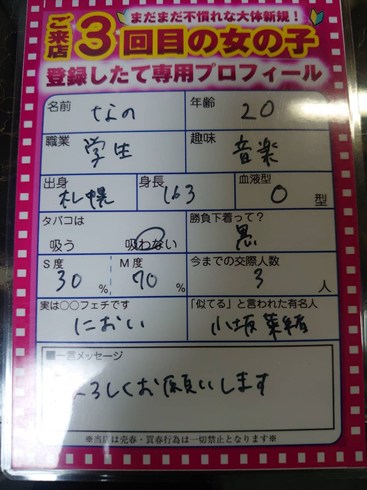 まだまだ不慣れな大体新規！
ご来店3回目の女の子
登録したて専用プロフィール
名前 なの 年齢 20
職業 学生 趣味 音楽
出身 札幌 身長 163 血液型 O 型
タバコは 吸う 吸わない 勝負下着って？ 黒
S度 30 % M度 70 % 今までの交際人数 3 人
実は○○フェチです におい 「似てる」と言われた有名人 小坂菜緒
一言メッセージ
よろしくお願いします
※当店は売春・買春行為は一切禁止となります※